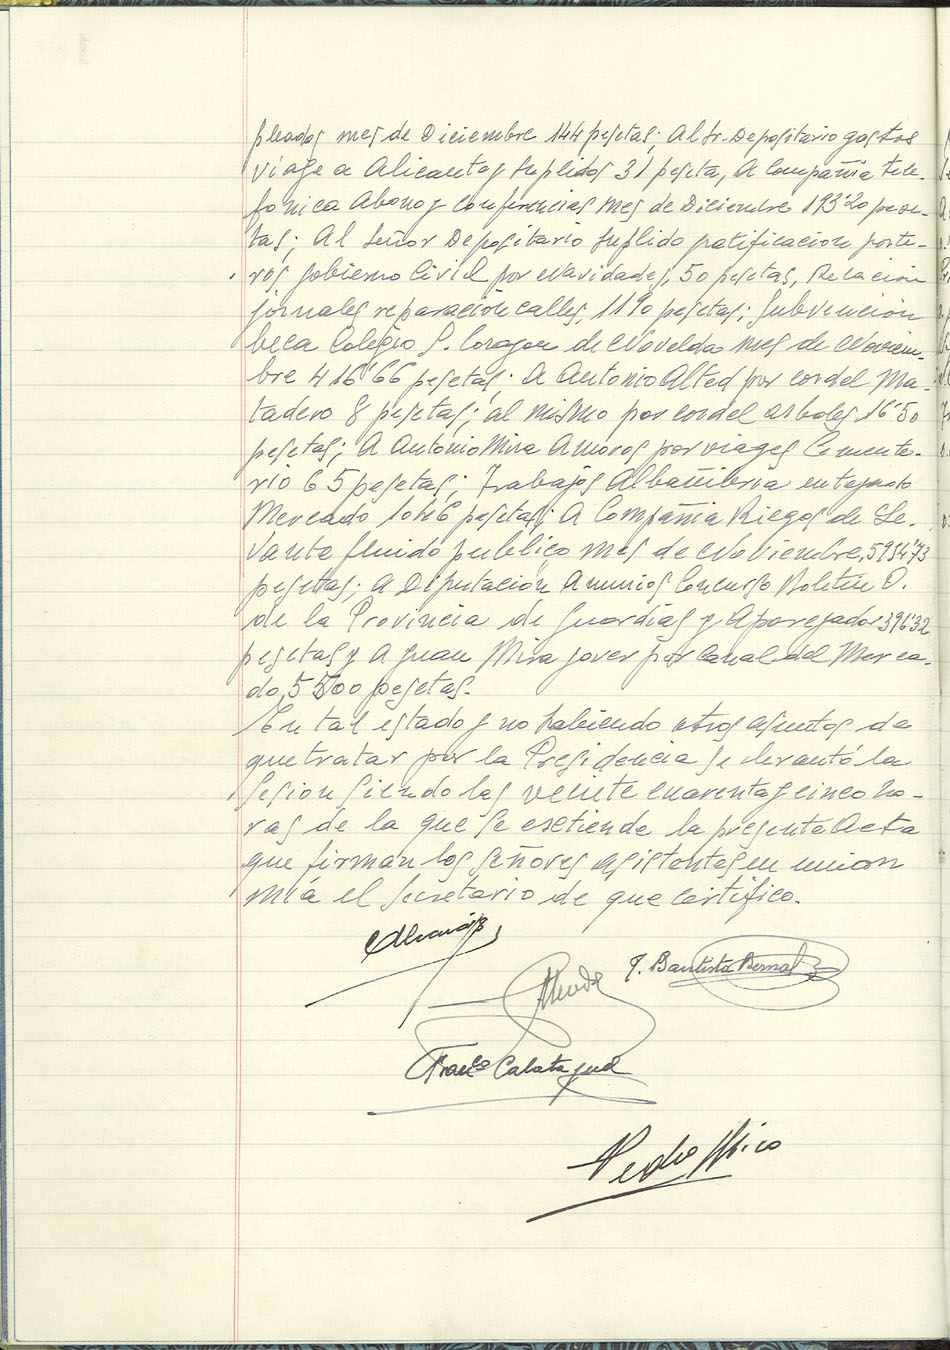 pleados mes de Diciembre 144 pesetas; Al Sr. Depositario gastos
viage a Alicante y suplidos 31 peseta, A Compañia Tele-
fonica Abono y Conferencias mes de Diciembre 193'20 pese-
tas; Al Señor Depositario suplido gratificacion porte-
ros Gobierno Civil por Navidades, 50 pesetas, Relacion
jornales reparación calles, 1190 pesetas; Subvencion
beca Colegio S. Corazon de Novelda mes de Noviem-
bre 416'66 pesetas; A Antonio Alted por cordel Ma-
tadero 8 pesetas; al mismo por cordel arboles 16'50
pesetas; A Antonio Mira Amoros por viages Cemente-
rio 65 pesetas; Trabajos Albañileria
Mercado pesetas; A Compañia Riegos de Le-
vante fluido publico mes de Noviembre, 5954'73
pesetas; A Diputación Anuncios Concurso Boletin O.
de la Provincia de Guardias y Aparejador 396'32
pesetas y A Juan Mira Jover por Canal del Merca-
do, 5500 pesetas.
En tal estado y no habiendo otros asuntos de
que tratar por la Presidencia se levantó la
sesion siendo las veinte cuarenta y cinco ho-
ras de la que se extiende la presente Acta
que firman los señores asistentes en union
mia el Secretario de que certifico.
J. Bautista Bernal
Franco Calatayud
Pedro Rico